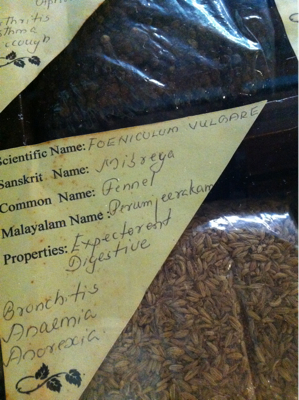 thritis
sthma
Scientific Name: FOENICULUM VULGARE
Sanskrit Name: Misreya
Common Name: Fennel
Malayalam Name: Perumjeerakam
Properties: Expectorent
Digestive
Bronchitis
Anaemia
Anorexia